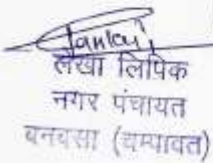 लेखा लिपिक
नगर पंचायत
बनबसा (चम्पावत)